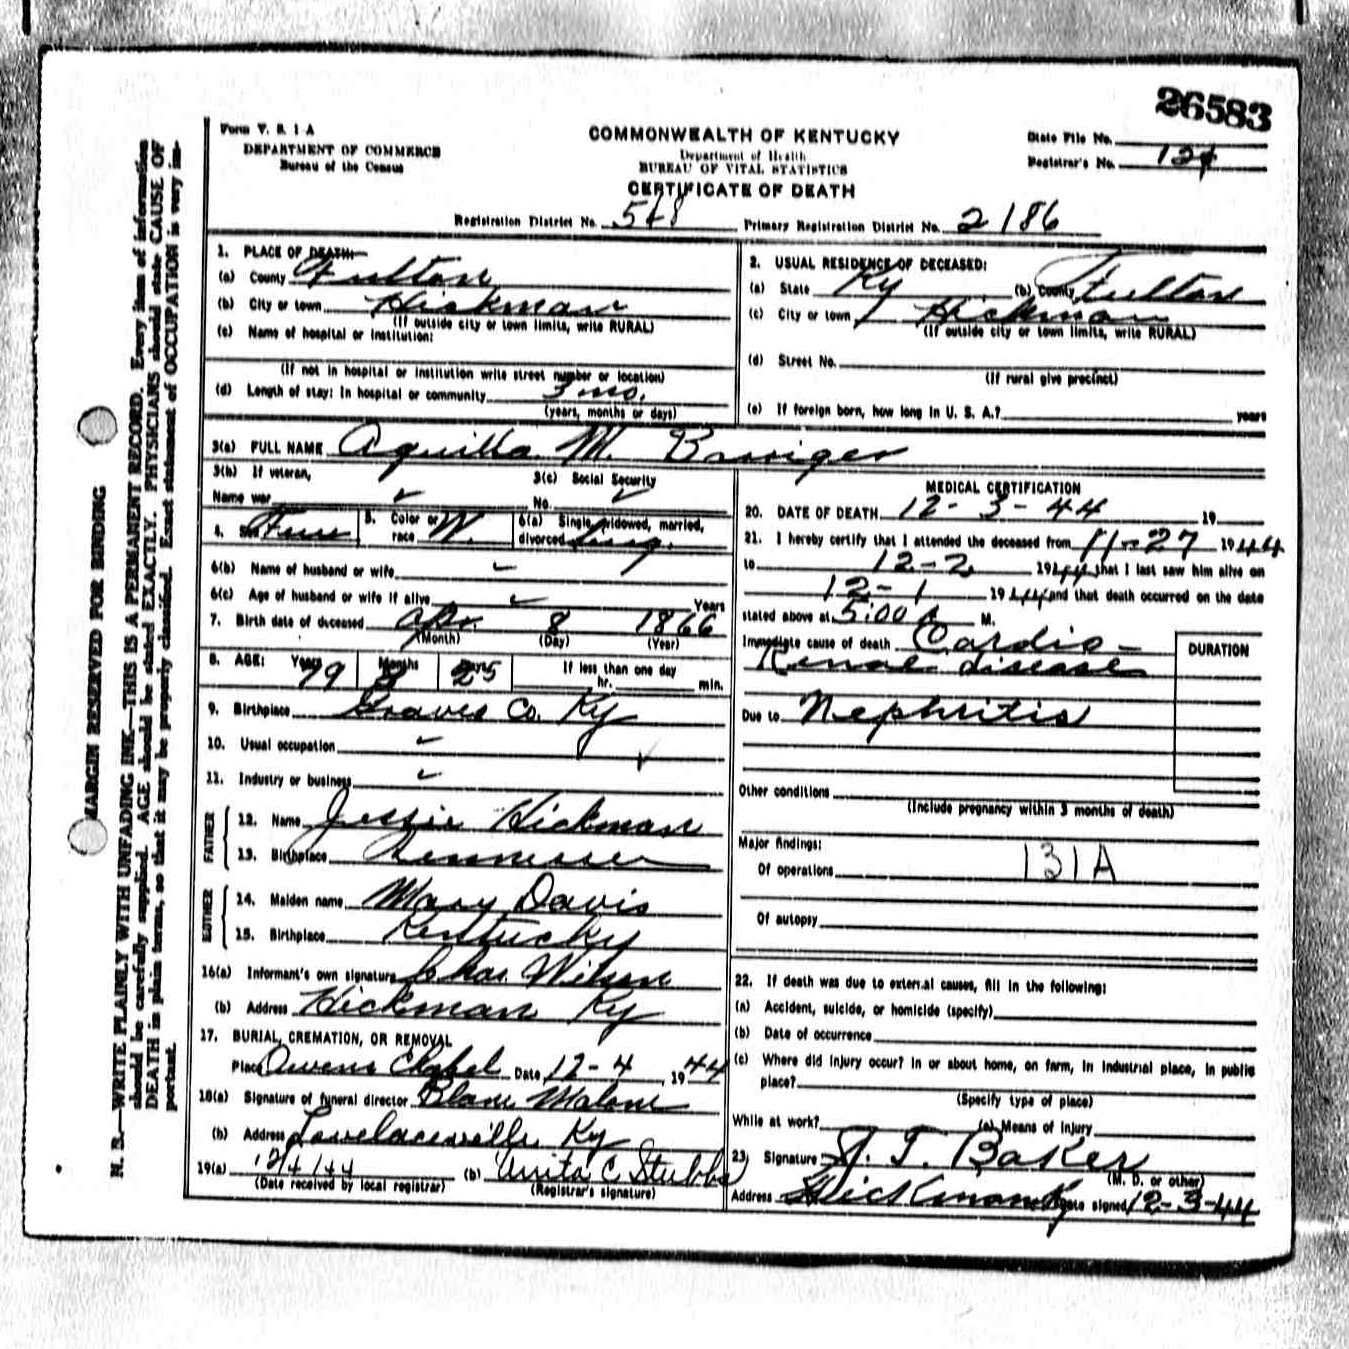 26583
Form V. S. 1-A
DEPARTMENT OF COMMERCE
Bureau of the Census
COMMONWEALTH OF KENTUCKY
Department of Health
BUREAU OF VITAL STATISTICS
CERTIFICATE OF DEATH
State File No.
Registrar's No. 124
Registration District No. 548 Primary Registration District No. 2186
1. PLACE OF DEATH
(a) County Fulton
(b) City or town Hickman
(If outside city or town limits, write RURAL)
(c) Name of hospital or institution:
(If not in hospital or institution write street number or location)
(d) Length of stay: In hospital or community 3 mo.
(years, months or days)
2. USUAL RESIDENCE OF DECEASED:
(a) State Ky (b) County Fulton
(c) City or town Hickman
(If outside city or town limits, write RURAL)
(d) Street No.
(If rural give precinct)
(e) If foreign born, how long in U. S. A.? years
3(a) FULL NAME Aquilla M.
3(b) If veteran,
Name war ✓
3(c) Social Security
No. ✓
4. Sex 5. Color or race W. 6(a) Single, widowed, married, divorced
6(b) Name of husband or wife ✓
6(c) Age of husband or wife if alive ✓ Years
7. Birth date of deceased Apr. 8 1866
(Month) (Day) (Year)
8. AGE: Years 79 Months 8 Days 25 If less than one day
hr. min.
9. Birthplace Graves Co. Ky
10. Usual occupation ✓
11. Industry or business ✓
FATHER
12. Name Jessie Hickman
13. Birthplace Tennessee
MOTHER
14. Maiden name Mary Davis
15. Birthplace Kentucky
16(a) Informant's own signature Chas. Wilson
(b) Address Hickman Ky
17. BURIAL, CREMATION, OR REMOVAL
Place Owens Chapel Date 12-4, 1944
18(a) Signature of funeral director Blane Malone
(b) Address Lovelaceville Ky
19(a) 12/4/44 (b) Anita C. Stubbs
(Date received by local registrar) (Registrar's signature)
MEDICAL CERTIFICATION
20. DATE OF DEATH 12-3-44 19
21. I hereby certify that I attended the deceased from 11-27 1944
to 12-2 1944 that I last saw him alive on
12-1 1944 and that death occurred on the date
stated above at 5:00 A M.
Immediate cause of death Cardio-
Renal disease
DURATION
Due to Nephritis
Other conditions
(Include pregnancy within 3 months of death)
Major findings:
Of operations 131A
Of autopsy
22. If death was due to external causes, fill in the following:
(a) Accident, suicide, or homicide (specify)
(b) Date of occurrence
(c) Where did injury occur? In or about home, on farm, in industrial place, in public
place?
(Specify type of place)
While at work? (e) Means of injury
23. Signature T. Baker
(M. D. or other)
Address Hickman Ky Date signed 12-3-44
MARGIN RESERVED FOR BINDING
N. B.—WRITE PLAINLY WITH UNFADING INK—THIS IS A PERMANENT RECORD. Every item of information
should be carefully supplied. AGE should be stated EXACTLY. PHYSICIANS should state CAUSE OF
DEATH in plain terms, so that it may be properly classified. Exact statement of OCCUPATION is very im-
portant.